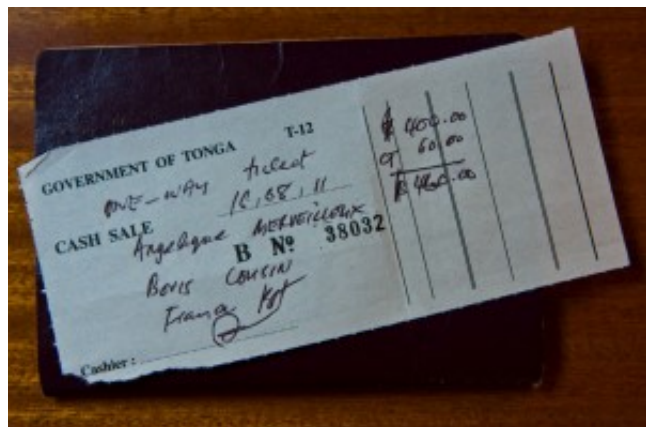 T-12
GOVERNMENT OF TONGA
ONE-WAY ticket
CASH SALE 10.08.11
Angelique MERVEILLEUX
B Nº 38032
Boris COUSIN
Cashier :
400.00
60.00
460.00